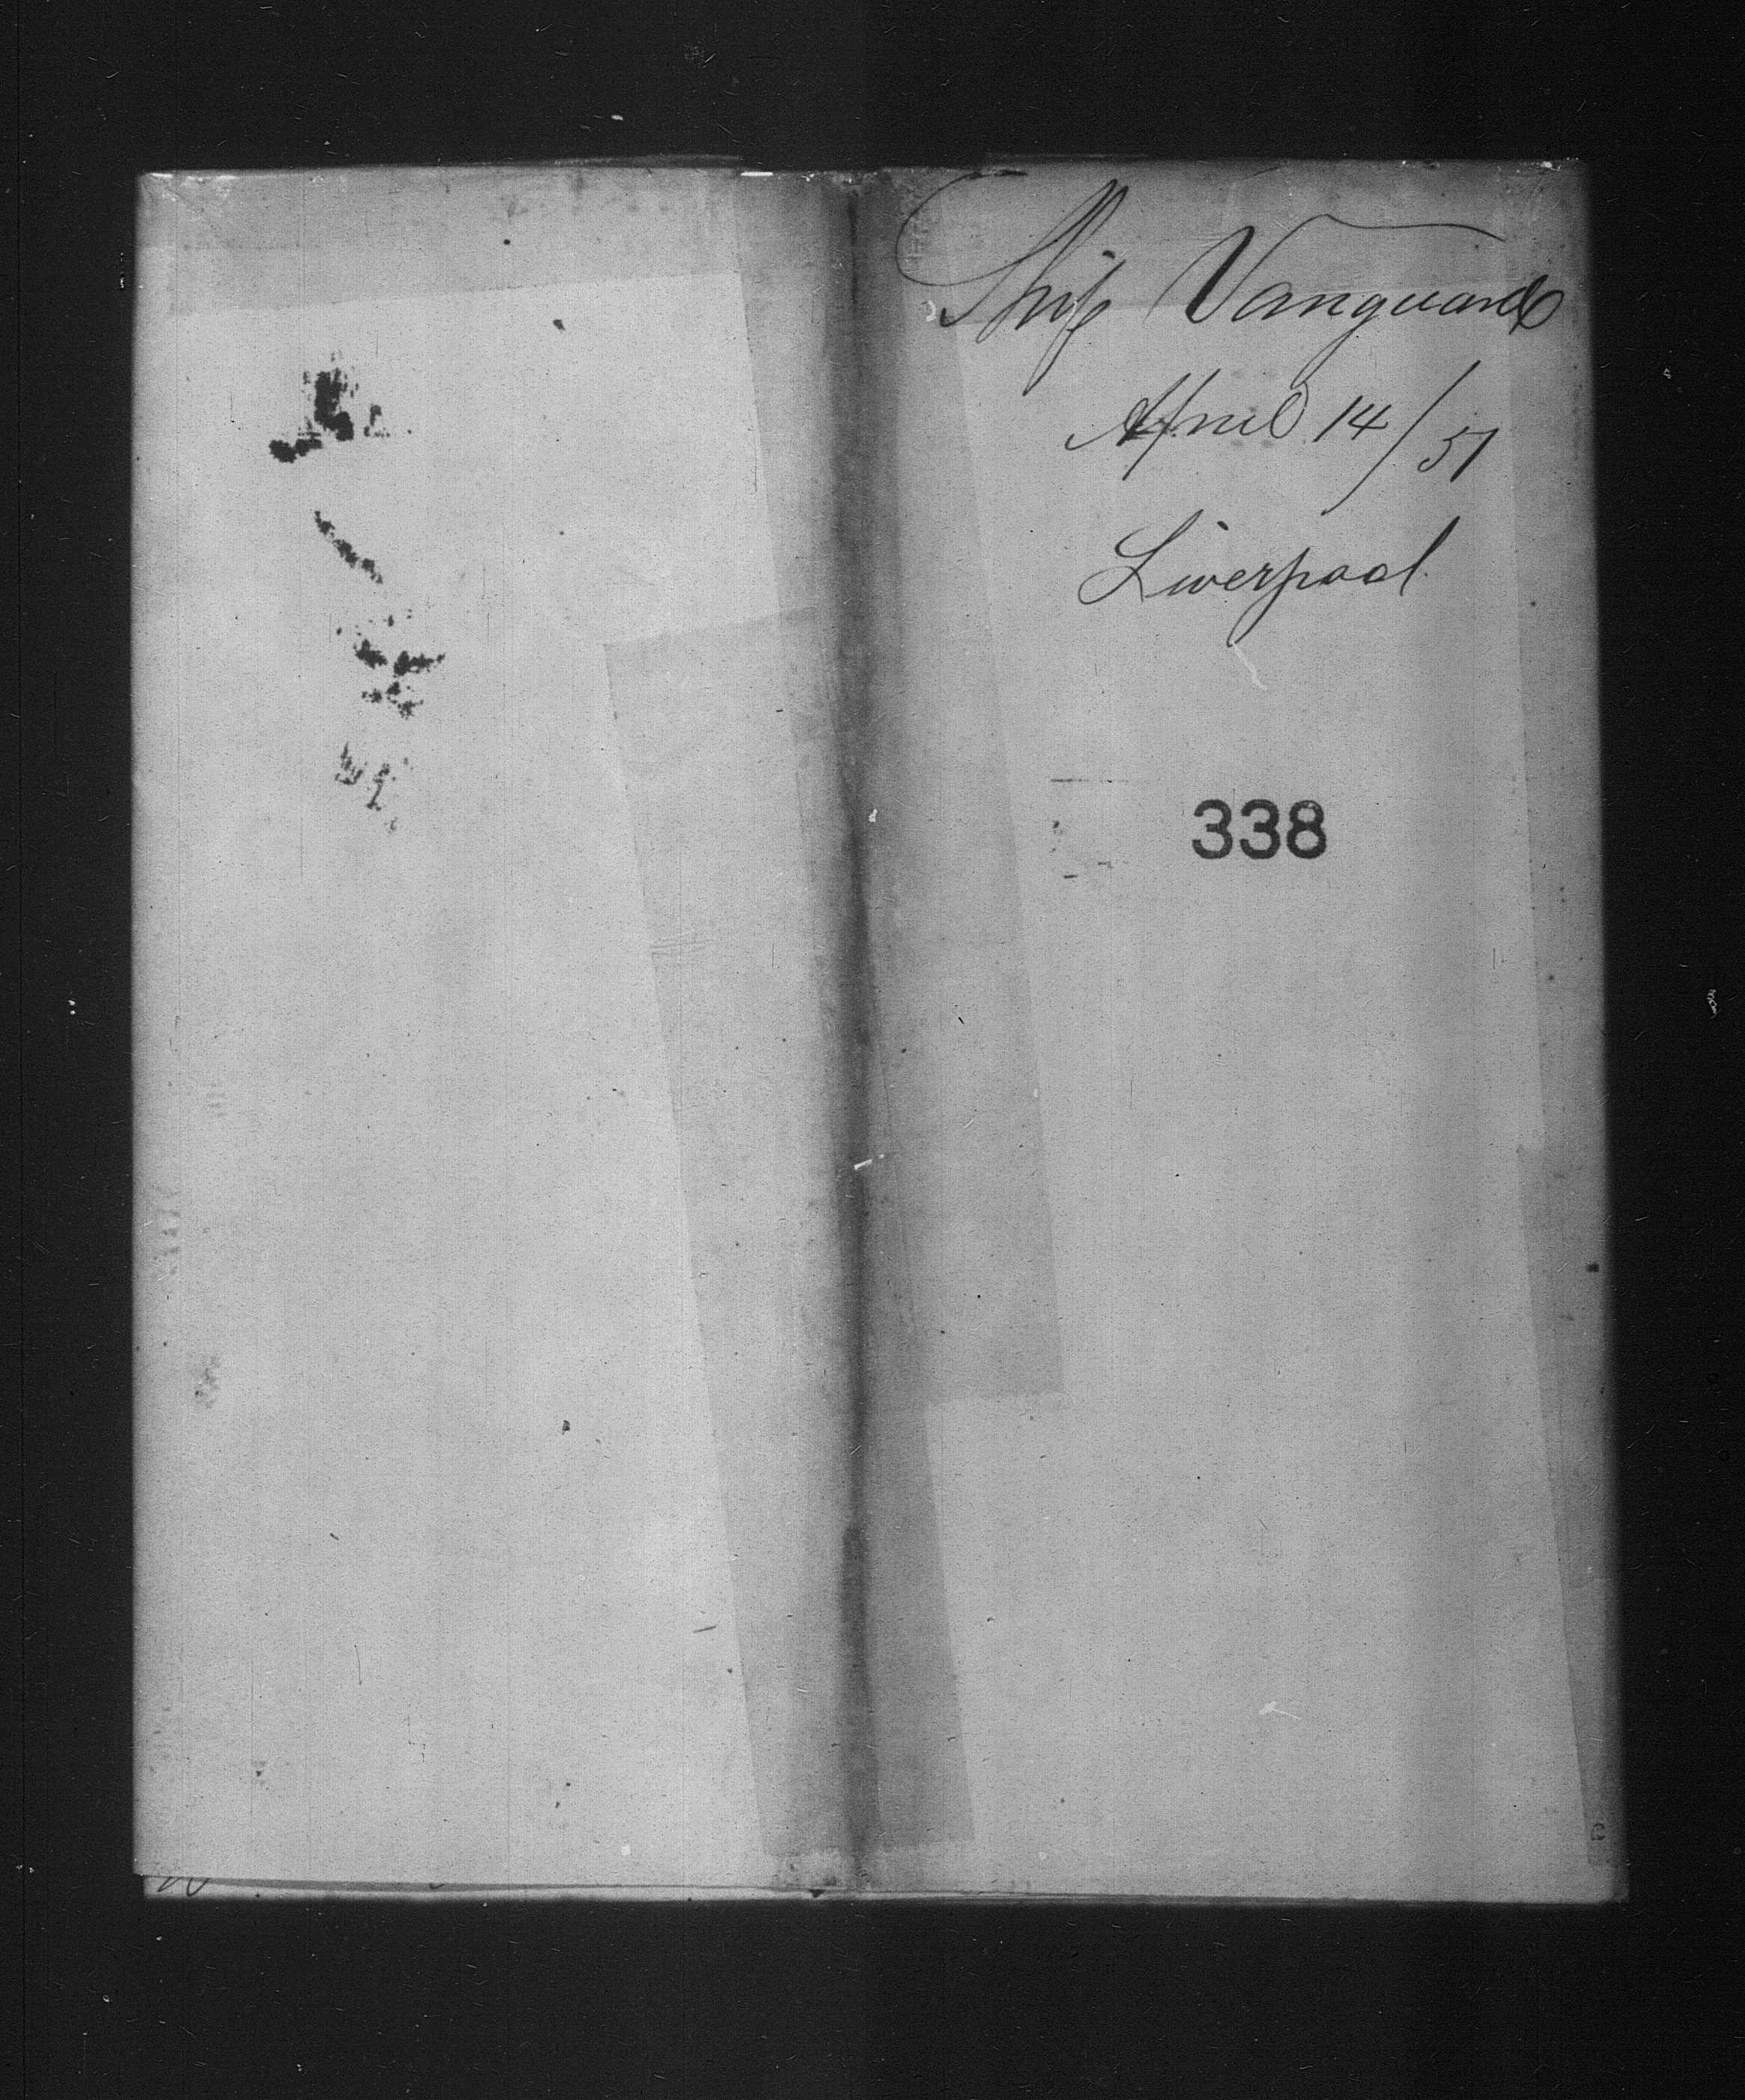 Ship Vanguard
April 14/51
Liverpool
338